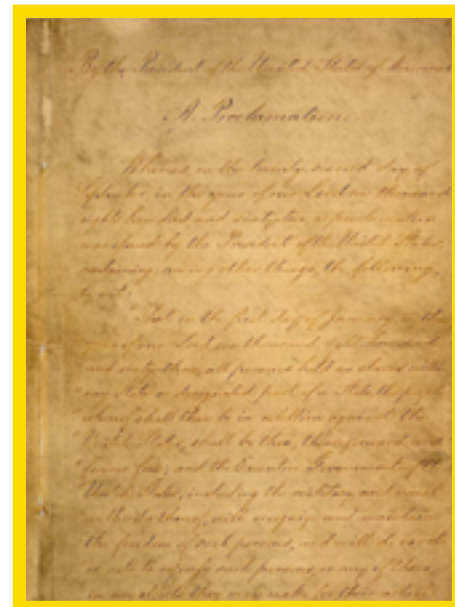 By the President of the United States of America
A Proclamation
Whereas, on the twenty second day of
September, in the year of our Lord one thousand
eight hundred and sixty two, a proclamation
was issued by the President of the United States,
containing, among other things, the following,
to wit:
"That on the first day of January, in the
year of our Lord one thousand eight hundred
and sixty three, all persons held as slaves within
any State or designated part of a State, the people
whereof shall then be in rebellion against the
United States, shall be then, thenceforward, and
forever free; and the Executive Government of the
United States, including the military and naval
authority thereof, will recognize and maintain
the freedom of such persons, and will do no act
or acts to repress such persons, or any of them,
in any efforts they may make for their actual